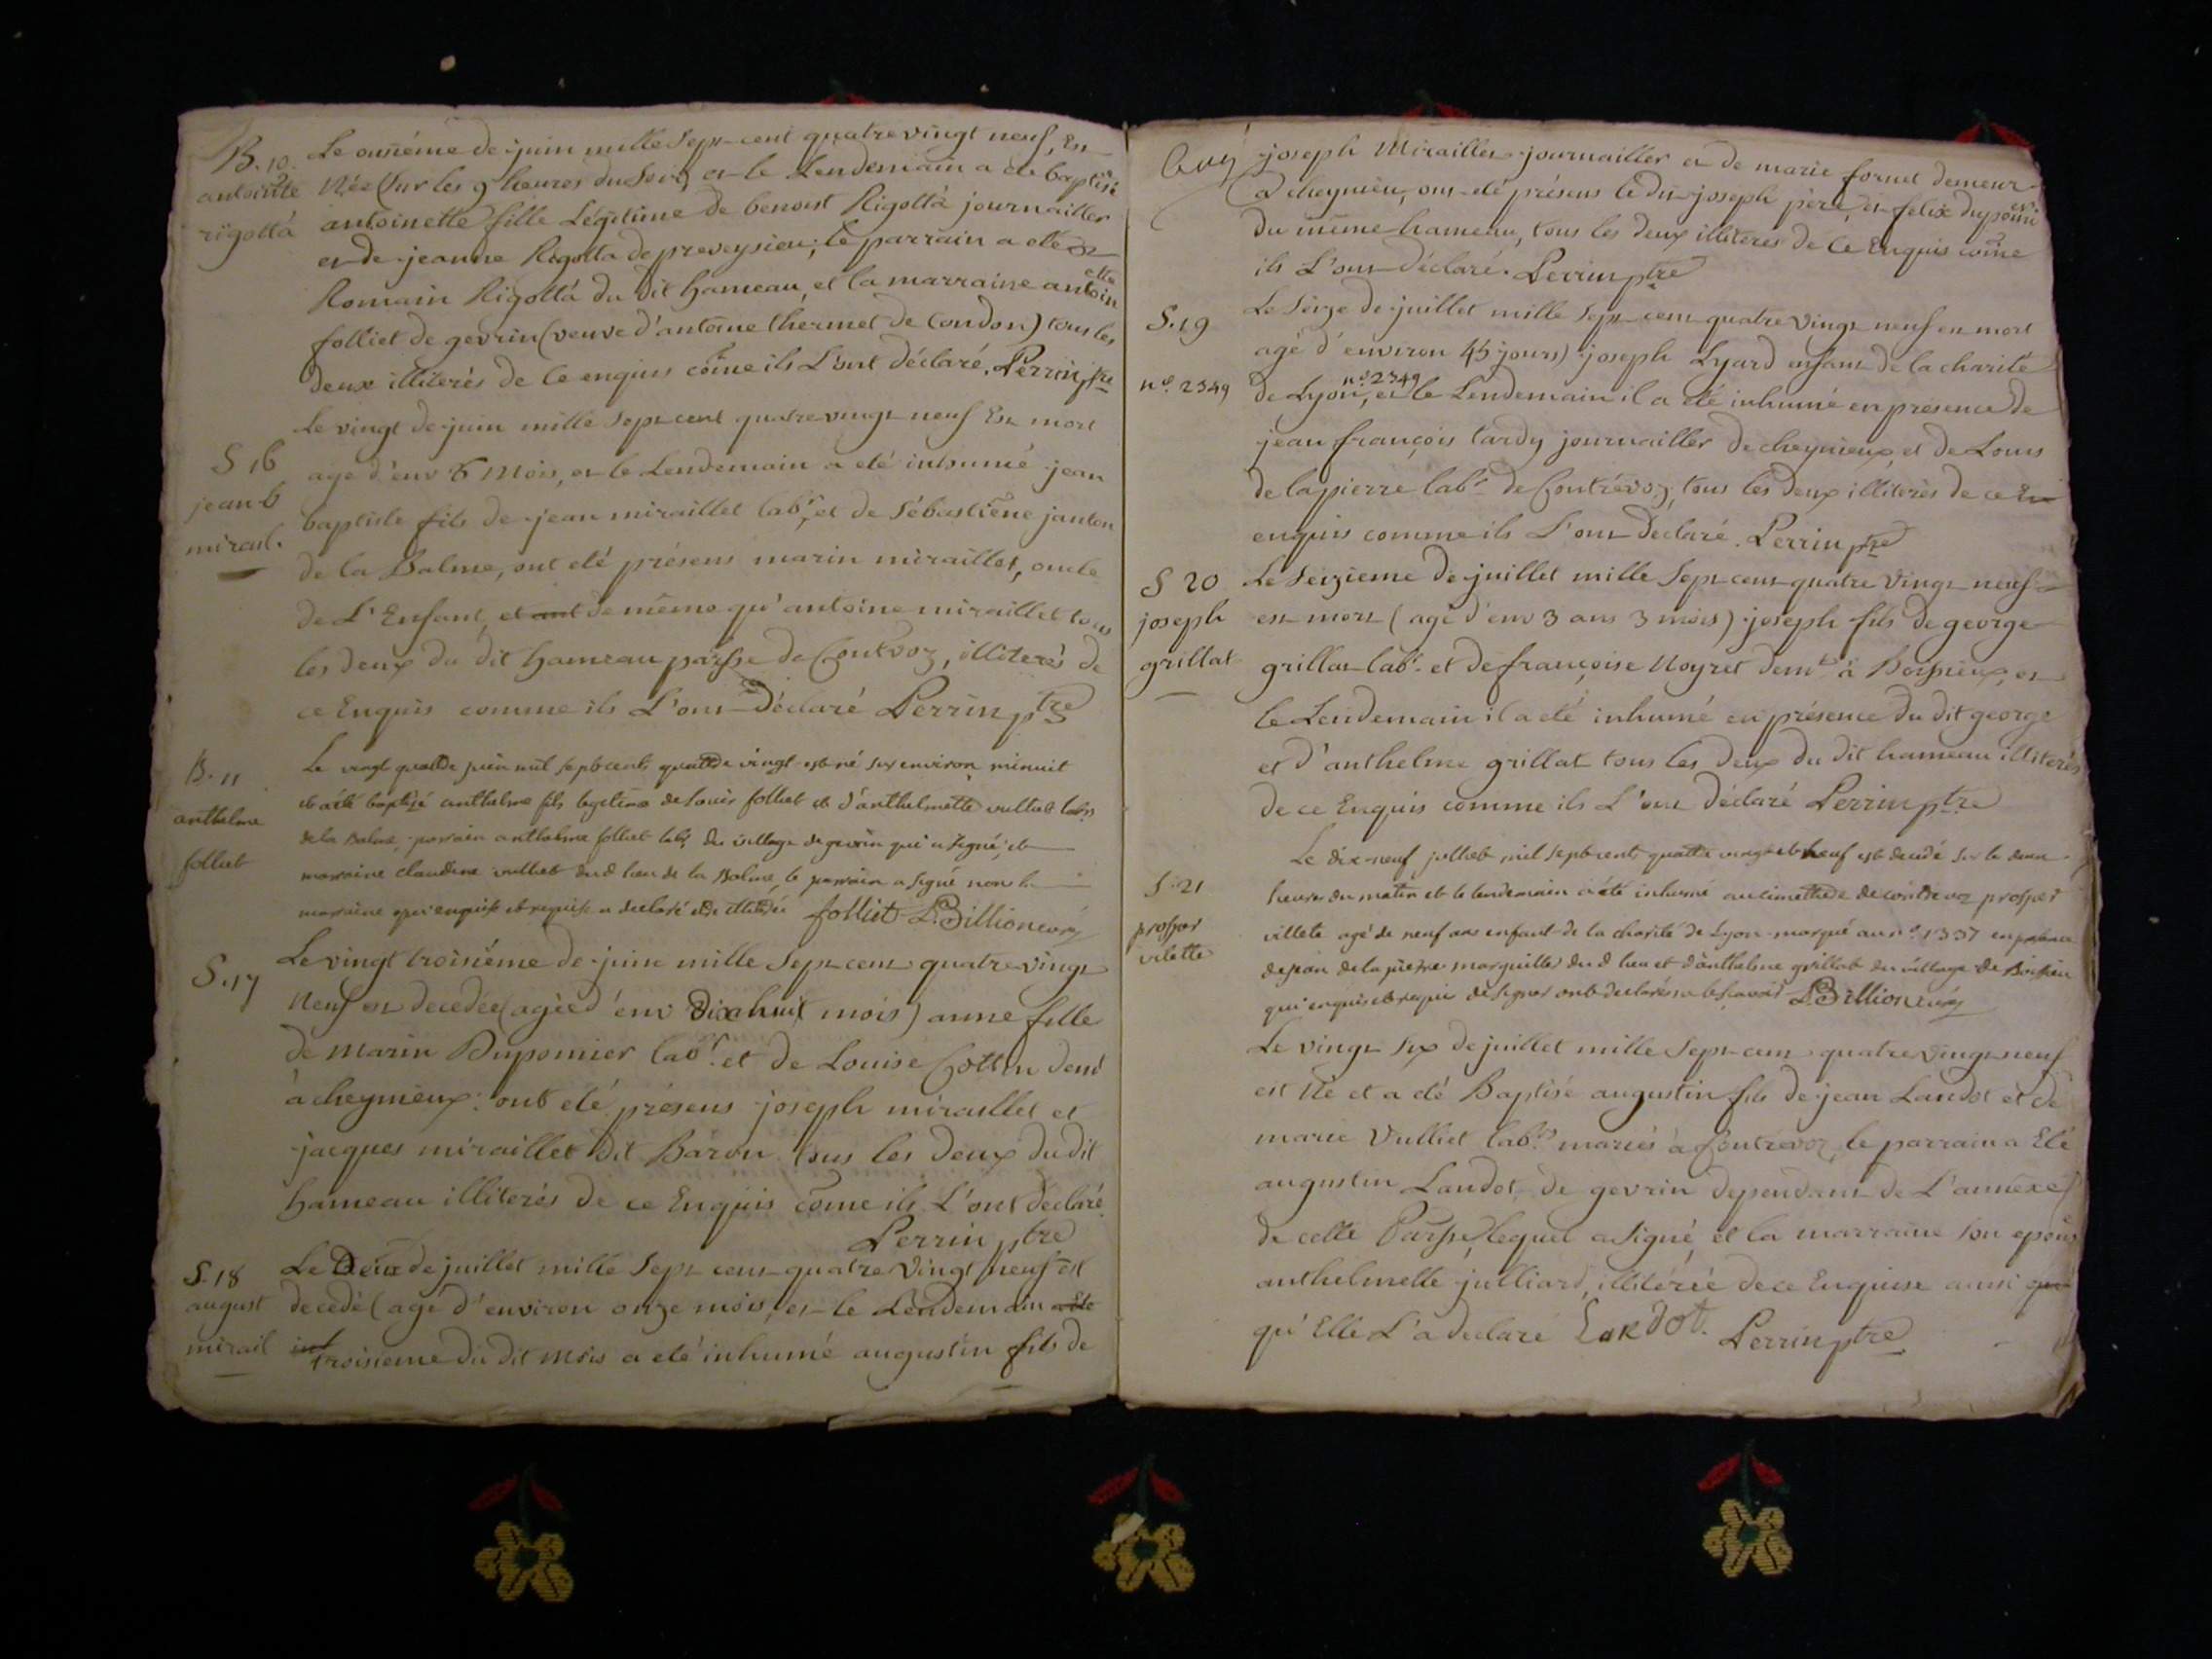 B. 10.
antoinette
rigotta
Le onziéme de juin mille Sept cent quatre vingt neuf, Est
Née (sur les 9 heures du soir) et le Lendemain a eté baptisé
antoinette fille Légitime de benoist Rigotta journaillier
et de jeanne Rigotta de preveysieu; le parrain a eté
Romain Rigotta du dit hameau, et la marraine antoinette
folliet de gevrin (veuve d'antoine thermet de Condon) tous les
deux illiterés de ce enquis come ils L'ont déclaré. Perrin ptre
S 16
jean b
mirail.
Le vingt de juin mille Sept cent quatre vingt neuf Est mort
agé d'env 6 Mois, et le Lendemain a eté inhumé jean
baptiste fils de jean miraillet labr, et de Sébastiene janton
de la Balme, ont eté présens marin miraillet, oncle
de L'Enfant, et ant de même qu'antoine miraillet tous
les deux du dit hameau parsse de Contrevoz, illiterés de
ce Enquis comme ils L'ont Déclaré Perrin ptre
B. 11
anthelme
folliet
Le vingt quatre juin mil sept cents quattre vingt est né sur environ minuit
et a été baptisé anthelme fils legitime de Louis folliet et d'anthelmette vulliet labrs
de la Balme, parrain anthelme folliet labr du village de gevrin qui a signé, et
marraine claudine vulliet dud lieu de la Balme, le parrain a signé non la
marraine qui enquise et requise a declaré etre illiterée folliet L. Billion curé
S. 17
Le vingt troisiéme de juin mille Sept cent quatre vingt
Neuf est decedée (agée d'env Dix huit mois) anne fille
de Marin Dupomier labr. et de Louise Cottin demt
à cheynieux: ont eté présens joseph miraillet et
jacques miraillet dit Baron tous les Deux du dit
hameau illiterés de ce Enquis come ils L'ont déclaré.
Perrin ptre
S. 18
august
mirail
Le Deux de juillet mille Sept cent quatre Vingt neuf est
decedé (agé d'environ onze mois, et le Lendemain a Eté
inh troisieme du dit Mois a eté inhumé augustin fils de
joseph Miraillet journaillier et de marie fornet demeur
à cheynieu, ont eté présens le dit joseph père, et felix dupomier
du même hameau, tous les deux illiterés de ce Enquis come
ils L'ont Déclaré. Perrin ptre
S. 19
n°. 2349
Le Seize de juillet mille Sept cent quatre Vingt neuf est mort
agé d'environ 45 jours) joseph Lyard enfant de la charité
de Lyon, n° 2349 et le Lendemain il a eté inhumé en présence de
jean françois tardy journaillier de cheynieux, et de Louis
delapierre labr. de Contrevoz, tous les Deux illiterés de ce En
enquis comme ils L'ont Déclaré. Perrin ptre
S 20
joseph
grillat
Le Seizieme de juillet mille Sept cent quatre Vingt neuf
est mort (agé d'env 3 ans 3 mois) joseph fils de george
grillat labr. et de françoise Noyret demts à Boissieux, et
le Lendemain il a eté inhumé en présence du dit george
et d'anthelme grillat tous les Deux du dit hameau illiterés
de ce Enquis comme ils L'ont déclaré Perrin ptre
S. 21
prosper
vilette
Le dix-neuf julliet mil sept cents quattre vingt et neuf est decedé sur le deux
heures du matin et le lendemain a été inhumé au cimettiere de contrevoz prosper
villette agé de neuf ans enfant de la charité de Lyon marqué au n° 1337 en présence
de jean de la pierre marguiller dud lieu et d'anthelme grillat du village de Boissieu
qui enquis et requis de signer ont declarés ne le scavoir L. Billion curé
Le vingt six de juillet mille Sept cent quatre Vingt neuf
est Né et a eté Baptisé augustin fils de jean Landot et de
marie Vulliet labrs. mariés à Contrevoz, le parrain a Eté
augustin Landot, de gevrin dependant de L'annexe
de cette Parsse, lequel a signé, et la marraine son epouse
anthelmette julliard, illiterée de ce Enquise ainsi que
qu'Elle L'a declaré LanDOt. Perrin ptre